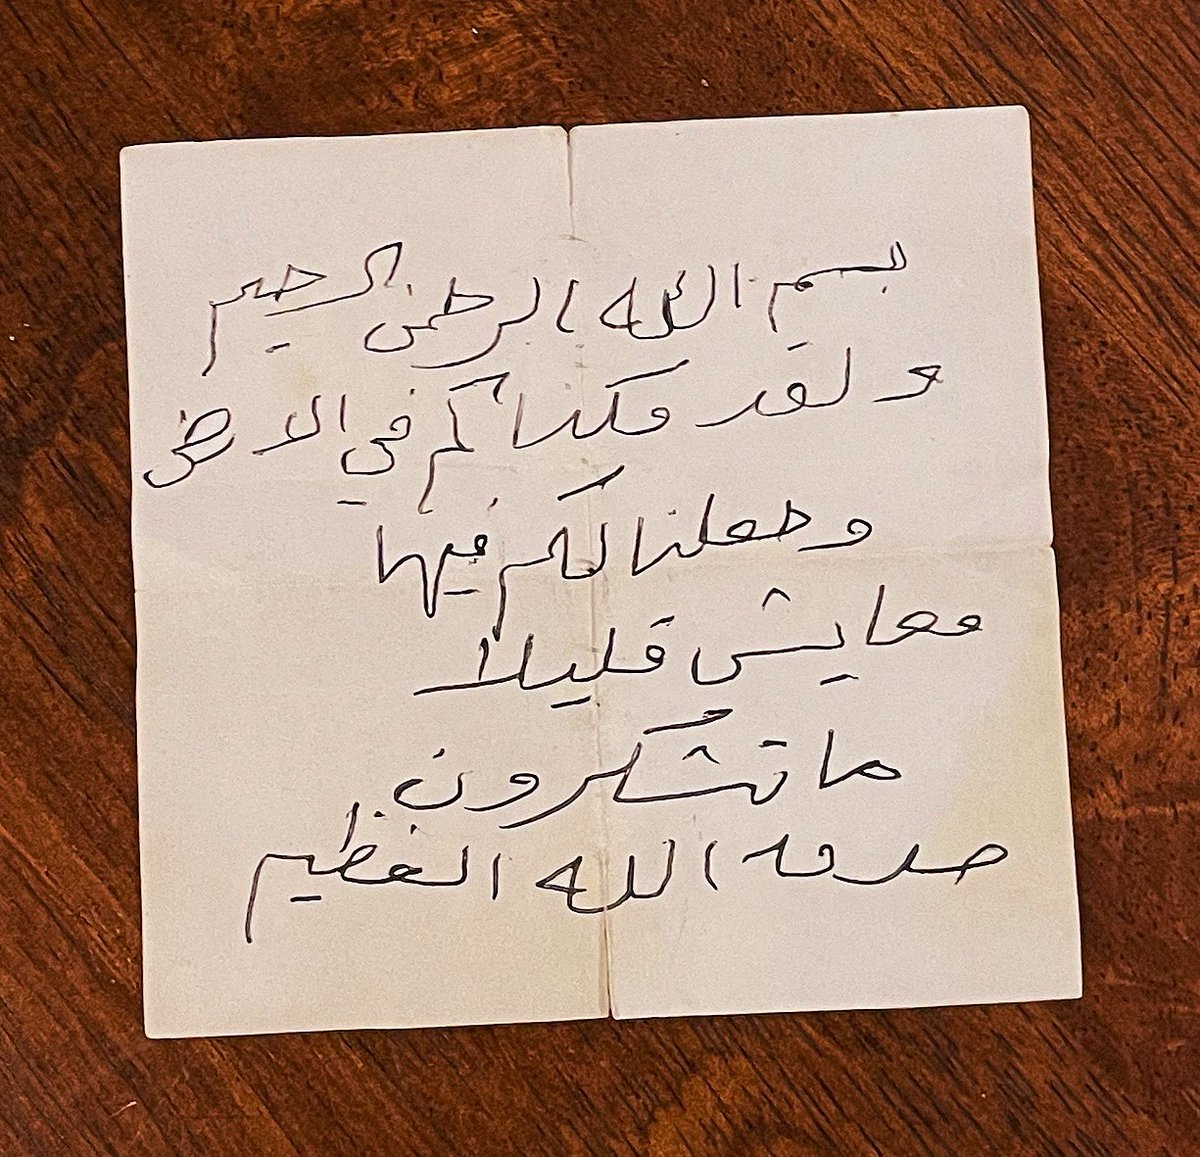 بسم الله الرحمن الرحيم
ولقد مكنا كم في الارض
وجعلنا لكم فيها
معايش قليلا
ما تشكرون
صدق الله العظيم